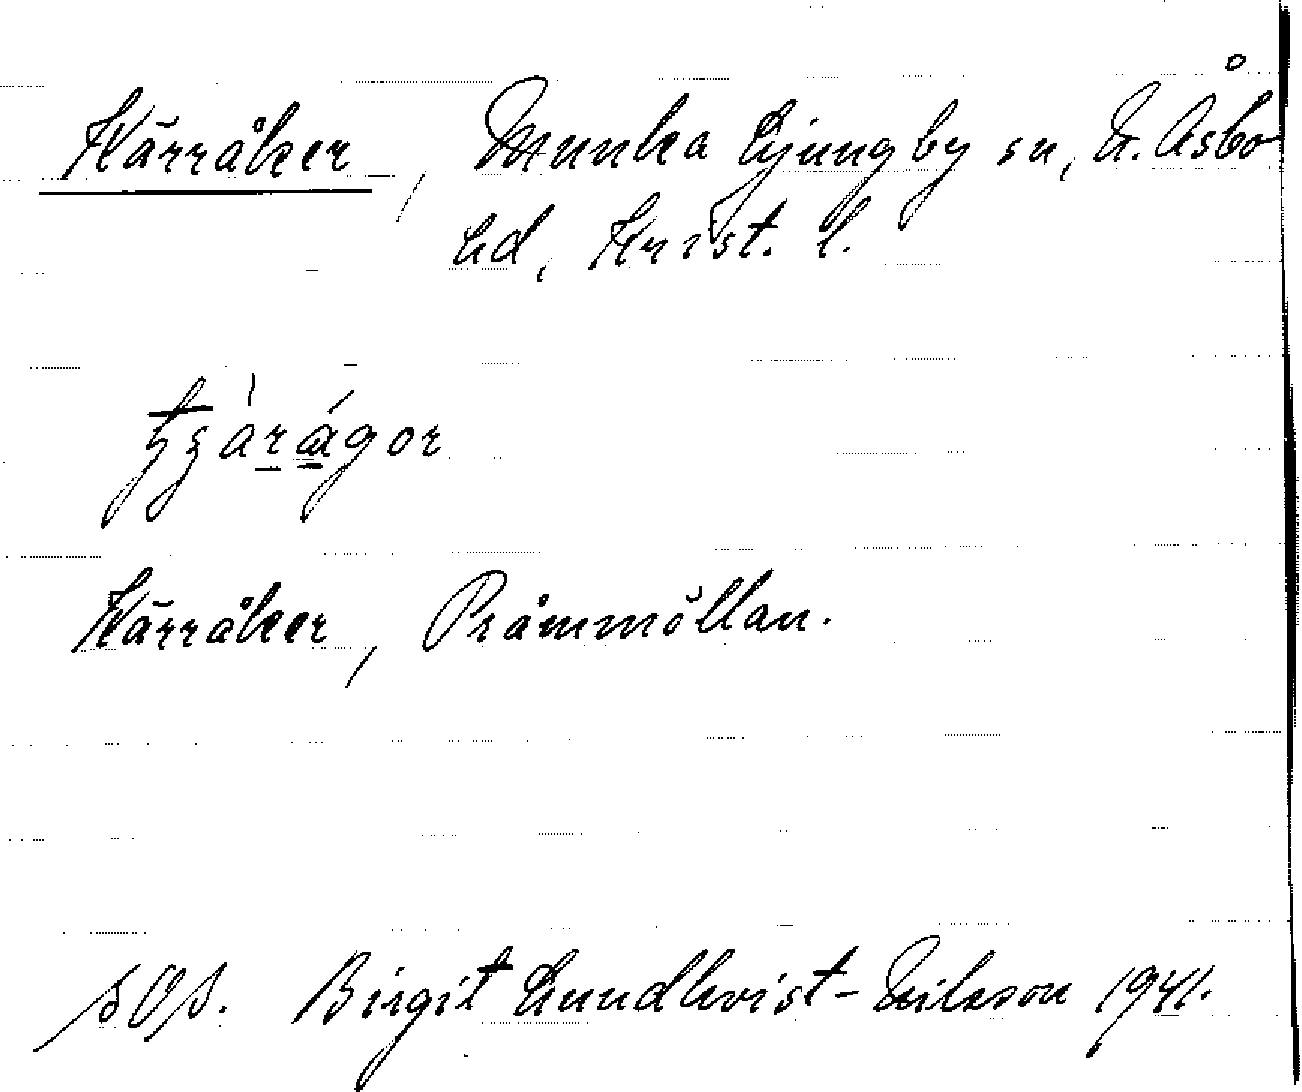 Kärråker, Munka Ljungby sn, N. Åsbo
hd, Krist. l.
Kärråker, Pråmmöllan.
SOS. Birgit Lundkvist-Nilsson 1941.